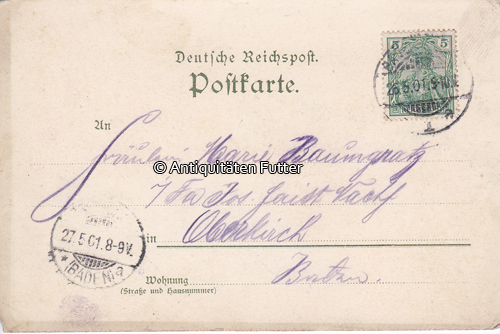 Deutsche Reichspost.
Postkarte.
5 5
26.5.01.
An
Fräulein Marie Baumgratz
© Antiquitäten Futter
7 Fa Jos. Geist Nachf
27.5.01.8-9V.
in Oberkirch
(BADEN)
Baden.
Wohnung
(Straße und Hausnummer)